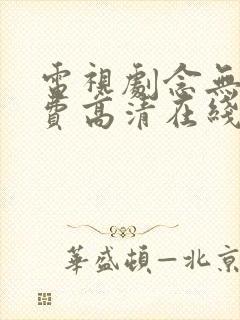 電視劇念無
費高清在綫
華盛頓—北京